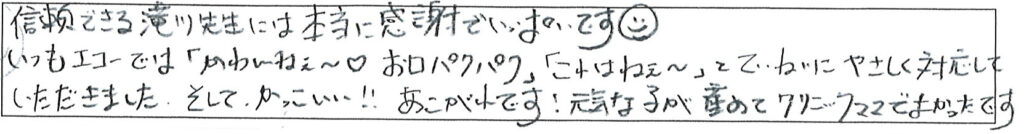 信頼できる滝川先生には本当に感謝でいっぱいです☺
いつもエコーでは「かわいねぇ〜♡ お口パクパク」「これはねぇ〜」とていねいにやさしく対応して
いただきました。そして、かっこいい!! あこがれです!元気な子が産めてクリニックママでよかったです